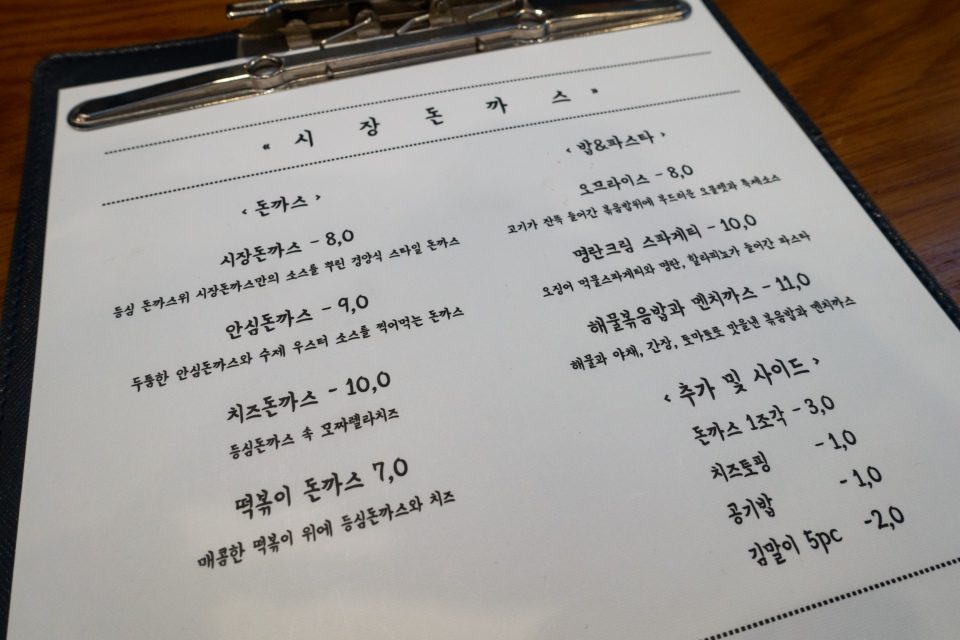 « 시 장 돈 까 스 »
< 돈까스 >
시장돈까스 - 8,0
등심 돈까스위 시장돈까스만의 소스를 뿌린 경양식 스타일 돈까스
안심돈까스 - 9,0
두툼한 안심돈까스와 수제 우스터 소스를 찍어먹는 돈까스
치즈돈까스 - 10,0
등심돈까스 속 모짜렐라치즈
떡볶이 돈까스 7,0
매콤한 떡볶이 위에 등심돈까스와 치즈
< 밥&파스타 >
오므라이스 - 8,0
고기가 잔뜩 들어간 볶음밥위에 부드러운 오믈렛과 특제소스
명란크림 스파게티 - 10,0
오징어 먹물스파게티와 명란, 할라피뇨가 들어간 파스타
해물볶음밥과 멘치까스 - 11,0
해물과 야채, 간장, 토마토로 맛을낸 볶음밥과 멘치까스
< 추가 및 사이드 >
돈까스 1조각 - 3,0
치즈토핑 - 1,0
공기밥 - 1,0
김말이 5pc - 2,0